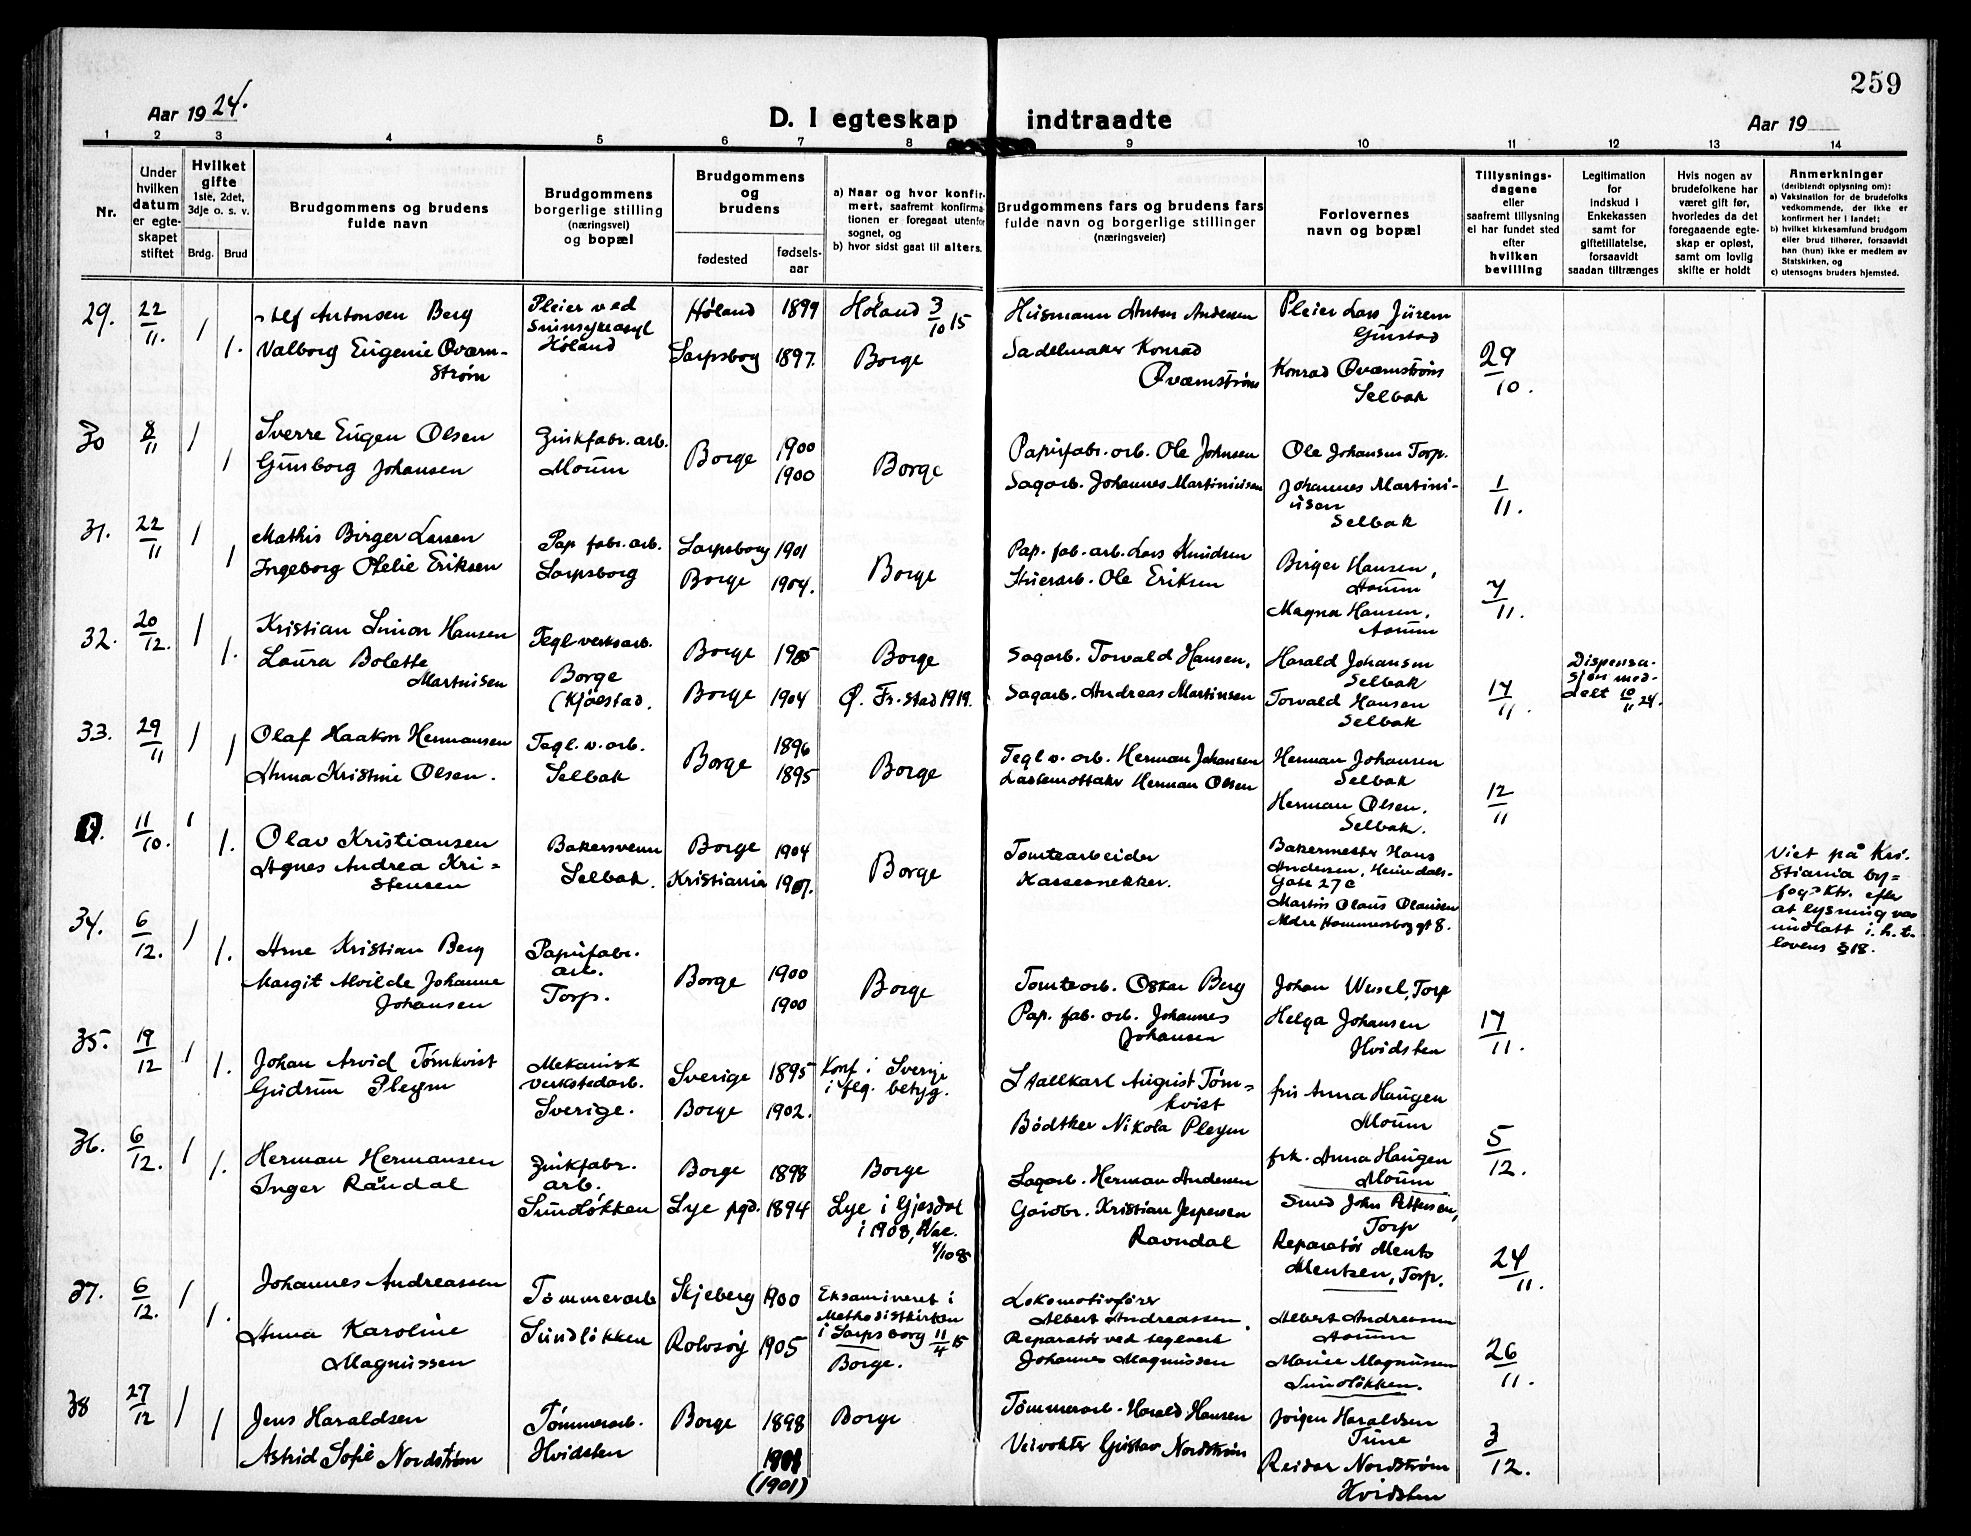 259
Aar 1924.
D. I egteskap indtraadte
Aar 19
1 2 3 4 5 6 7 8 9 10 11 12 13 14
Nr.
Under
hvilken
datum
er egte-
skapet
stiftet
Hvilket
gifte
1ste, 2det,
3dje o. s. v.
Brdg. Brud
Brudgommens og brudens
fulde navn
Brudgommens
borgerlige stilling
(næringsvei)
og bopæl
Brudgommens
og
brudens
fødested
fødsels-
aar
a) Naar og hvor konfir-
mert, saafremt konfirma-
tionen er foregaat utenfor
sognet, og
b) hvor sidst gaat til alters.
Brudgommens fars og brudens fars
fulde navn og borgerlige stillinger
(næringsveier)
Forlovernes
navn og bopæl
Tillysnings-
dagene
eller
saafremt tillysning
ei har fundet sted
efter
hvilken
bevilling
Legitimation
for
indskud i
Enkekassen
samt for
giftetillatelse,
forsaavidt
saadan tiltrænges
Hvis nogen av
brudefolkene har
været gift før,
hvorledes da det
foregaaende egte-
skap er opløst,
samt om lovlig
skifte er holdt
Anmerkninger
(deriblandt oplysning om):
a) Vaksination for de brudefolks
vedkommende, der ikke er
konfirmert her i landet;
b) hvilket kirkesamfund brudgom
eller brud tilhører, forsaavidt
han (hun) ikke er medlem av
Statskirken, og
c) utensogns bruders hjemsted.
29. 22/11. 1 1.
Antonsen Berg
Valborg Eugenie Qvarn-
strøm
Pleier ved
Sinnsykeasyl
Høland
Høland 1899 Høland 3/10 15
Sarpsborg 1897. Borge
Husmann Anton Andersen
Sadelmaker Konrad
Qvarnstrøm
Pleier Lars Jüren
Gunstad
Konrad Qvarnstrøm
Selbak
29/10.
30 8/11 1 1
Sverre Eugen Olsen
Gunborg Johansen
Zinkfabr. arb.
Moum
Borge 1900
1900
Borge
Papirfabr. arb. Ole Johnsen
Sagarb. Johannes Martiniusen
Ole Johansen Torp.
Johannes Martini-
usen
Selbak
1/11.
31. 22/11 1 1
Mathis Birger Larsen
Ingeborg Otelie Eriksen
Pap fabr. arb.
Sarpsborg
Sarpsborg 1901
Borge 1904.
Borge
Pap. fab. arb. Lars Knudsen
Stuerarb. Ole Eriksen
Birger Hansen,
Moum
Magna Hansen,
Moum
7/11.
32. 20/12. 1 1.
Kristian Simon Hansen
Laura Bolette
Martinsen
Teglverksarb.
Borge
(Kjølstad.
Borge 1905 Borge
Borge 1904 Ø. Fr.stad 1919.
Sagarb. Torvald Hansen,
Sagarb. Andreas Martinsen
Harald Johansen
Selbak
Torvald Hansen
Selbak
17/11.
Dispensa-
sjon med-
delt 10/11 24.
33. 29/11 1 1
Olaf Haakon Hermansen
Anna Kristine Olsen.
Tegl. v. arb.
Selbak
Borge 1896
1895
Borge
Tegl v. arb. Herman Johansen
Lastemottaker Herman Olsen
Herman Johansen
Selbak
Herman Olsen.
Selbak.
12/11
11/10. 1 1.
Olav Kristiansen
Agnes Andrea Kri-
stensen
Bakersvenn
Selbak.
Borge 1904
Kristiania 1907.
Borge
Tomtearbeider
Kassesnekker.
Bakermester Hans
Andersen, Heimdals-
Gate 27 c
Martin Olaus Olausen
Møre Hammersborg gt 8.
Viet på Kri-
stiania by-
fog. Ktr. efter
at lysning var
undlatt i. h. t.
lovens § 18.
34. 6/12. 1 1.
Arne Kristian Berg
Margit Alvilde Johanne
Johansen
Papirfabr.
arb.
Torp.
Borge 1900
1900
Borge
Tomtearb. Oskar Berg
Pap. fab. arb. Johannes
Johansen
Johan Wesel, Torp
Helga Johansen
Hvidsten
17/11.
35. 19/12 1 1.
Johan Arvid Törnkvist
Gudrun Pleym
Mekanisk
verkstedarb.
Sverige.
Sverige 1895
Borge 1902.
Konf. i Sverige
i flg. betyg.
Stallkarl August Törn-
kvist
Bødtker Nikola Pleym
fru Anna Haugen
Moum
frk. Anna Haugen
Moum
5/12.
36. 6/12. 1 1.
Herman Hermansen
Inger Ravndal
Zinkfabr.
arb.
Sundløkken
Borge 1898 Borge
Lye pgd. 1894 Lye i Gjesdal
i 1908, Vac.
4/10 95
Sagarb. Herman Andersen
Gaardbr. Kristian Jespersen
Ravndal
Smed John Pettersen,
Torp
Reparatør Ments
Mentsen, Torp.
24/11.
37. 6/12. 1 1.
Johannes Andreassen
Anna Karoline
Magnussen
Tømmerarb
Sundløkken
Skjeberg 1900
Rolvsøy 1905
Eksamineret i
Methodistkirken
i Sarpsborg 11/4 15
Borge.
Lokomotivfører
Albert Andreassen.
Reparatør ved teglverk
Johannes Magnussen
Albert Andreassen
Moum
Marie Magnussen
Sundløkken.
26/11.
38 27/12 1 1
Jens Haraldsen
Astrid Sofie Nordstrøm
Tømmerarb.
Hvidsten
Borge 1898 Borge
1901
(1901)
Tømmerarb. Harald Hansen
Veivokter Gustav Nordstrøm
Jørgen Haraldsen
Tune
Reidar Nordstrøm
Hvidsten
3/12.